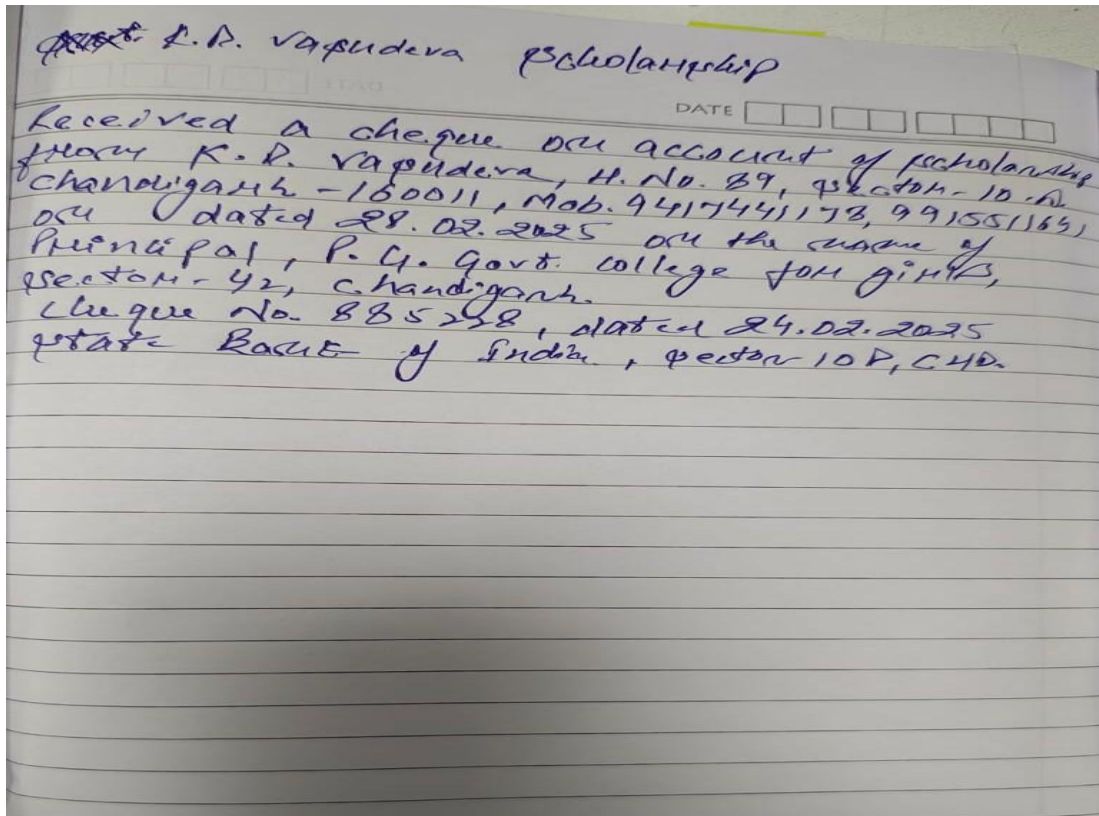 K.D. Vasudeva Scholarship
DATE
Received a cheque on account of scholarship
from K.D. Vasudeva, H. No. 89, Sector-10-A
Chandigarh - 160011, Mob. 9417441173, 9915511651
on dated 28.02.2025 on the name of
Principal, P.G. Govt. College for girls,
Sector-42, Chandigarh.
Cheque No. 885238, dated 24.02.2025
State Bank of India, Sector 10D, CHD.